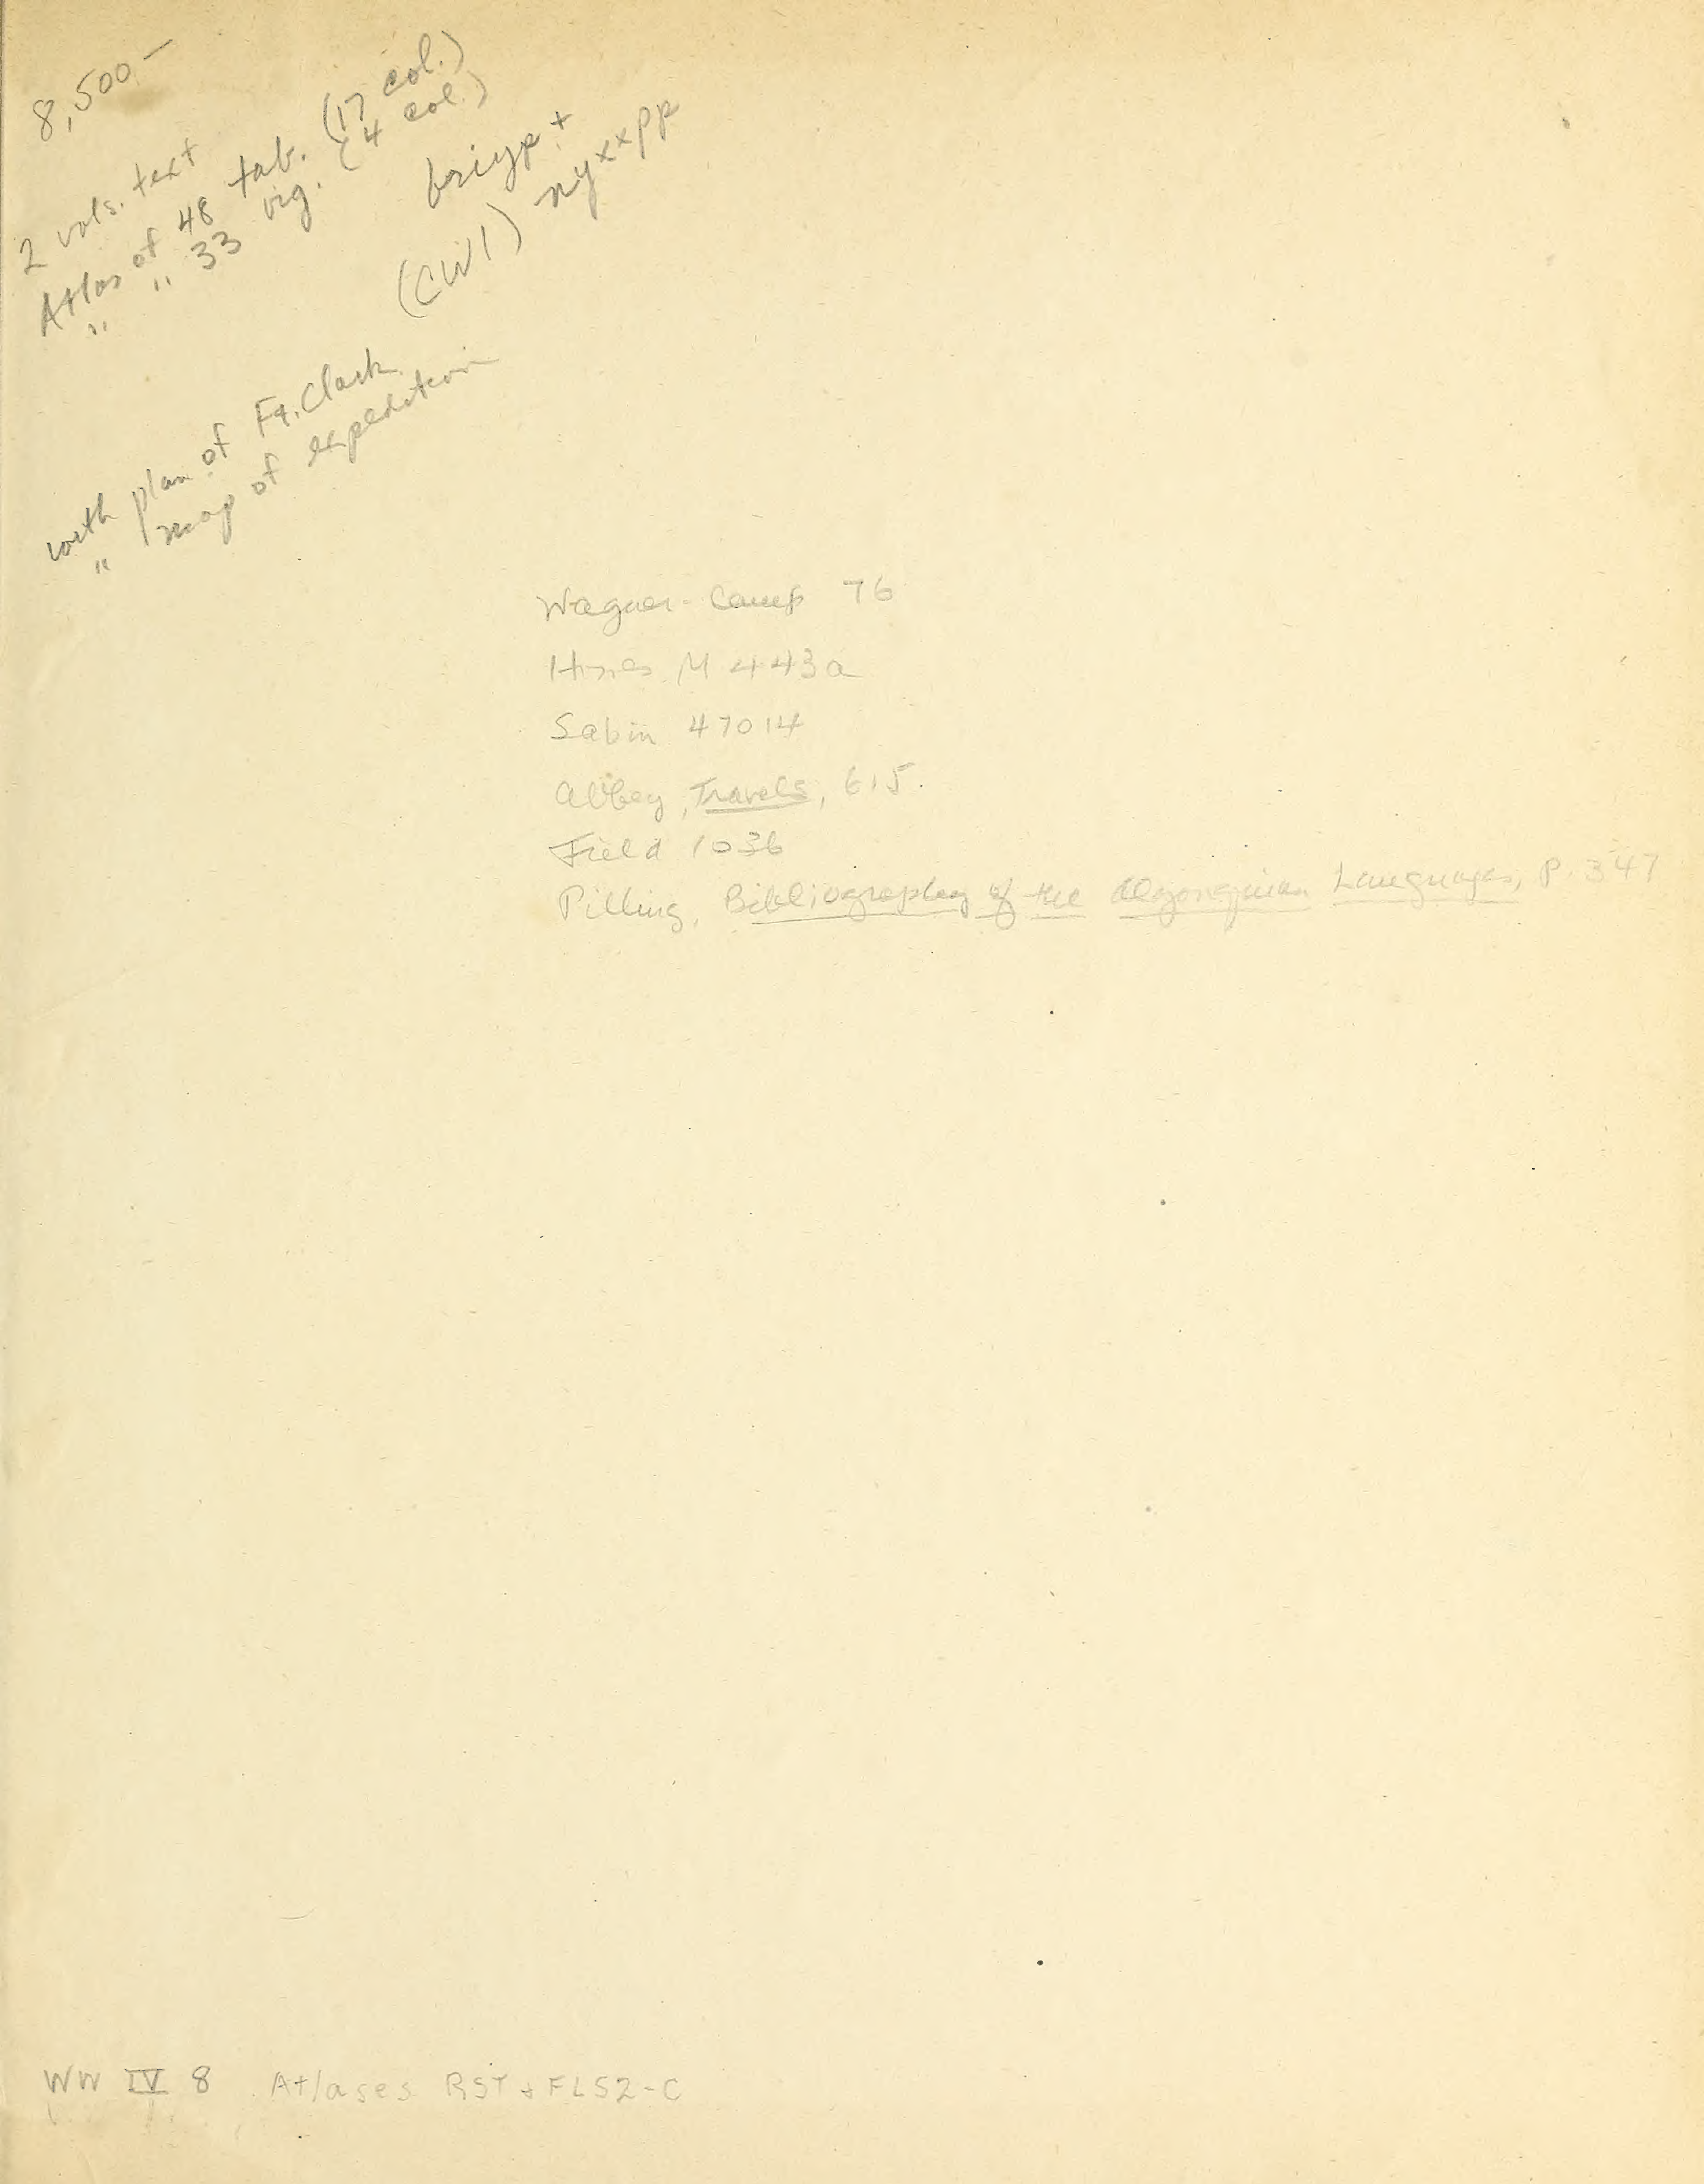 8,500.—
2 vols. text
Atlas of 48 tab. (17 col.)
" " 33 vig. (4 col.)
briyp +
(CW1) nyxxpp
with plan of Ft. Clark
" map of expedition
Wagner-Camp 76
Howes M 443a
Sabin 47014
Abbey, Travels, 615.
Field 1036
Pilling, Bibliography of the Algonquian Languages, P. 347
WW IV 8 Atlases RST + FL52-C